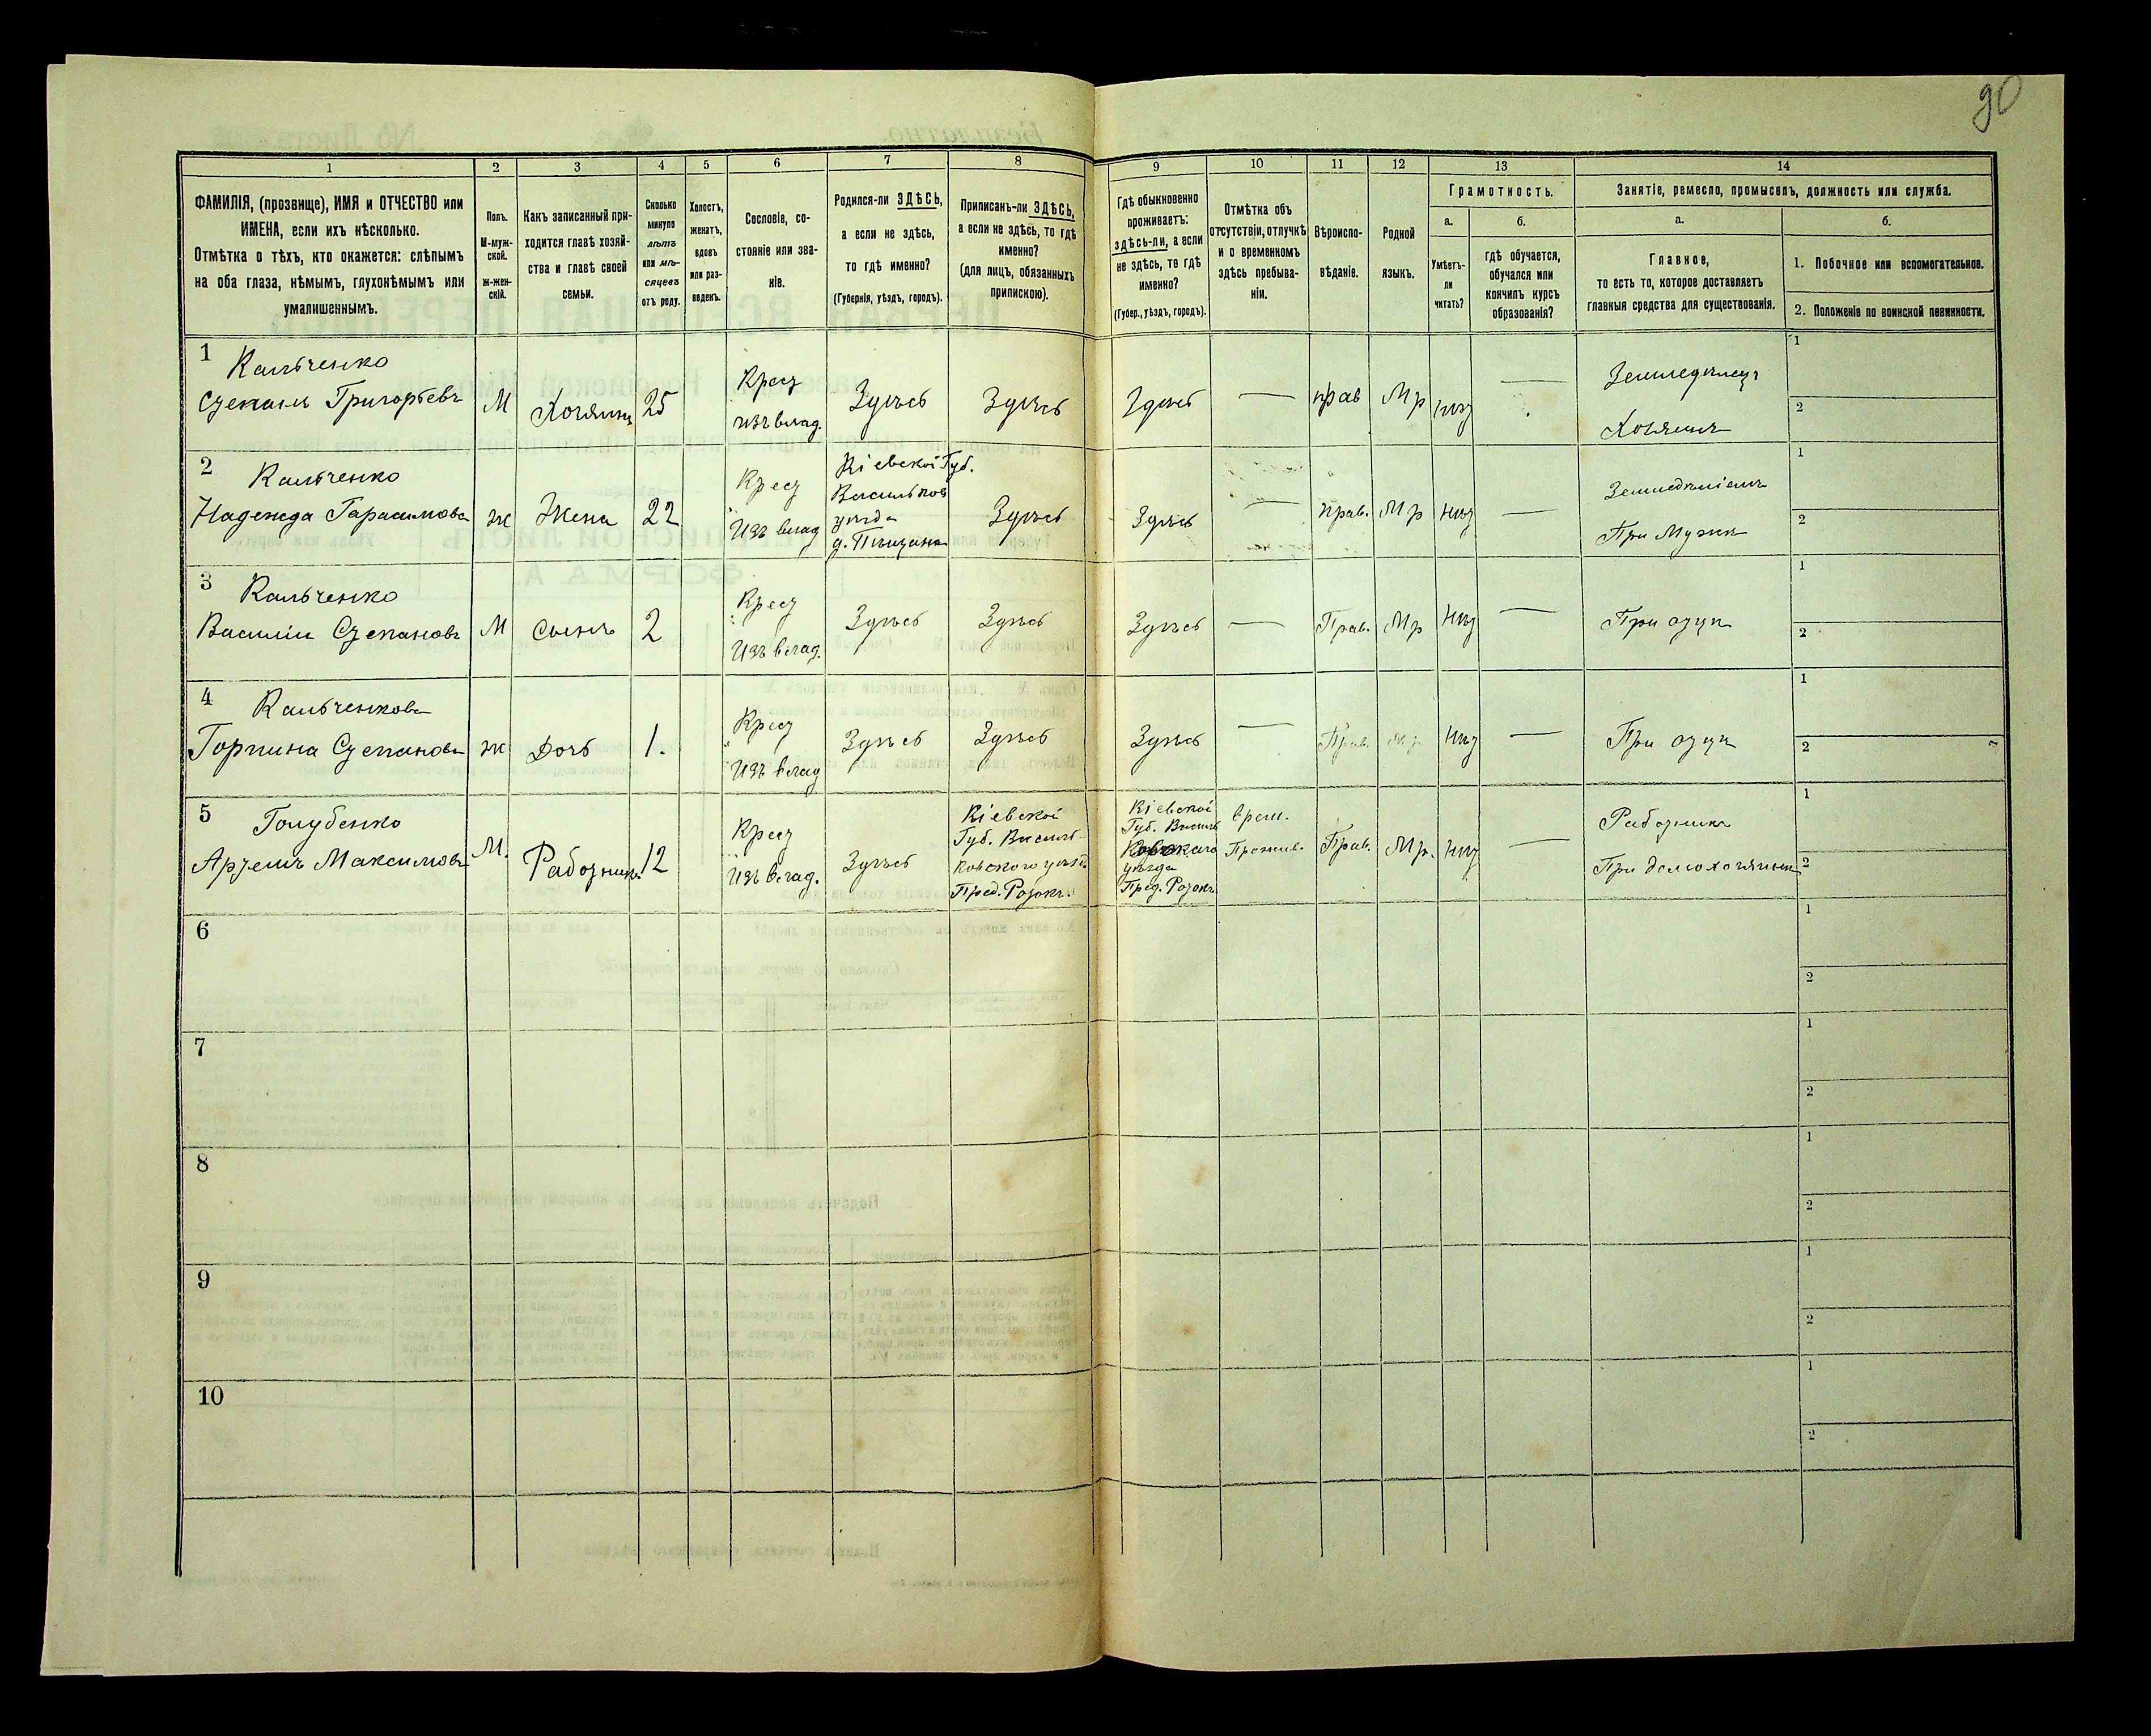 90
1 2 3 4 5 6 7 8 9 10 11 12 13 14
ФАМИЛІЯ, (прозвище), ИМЯ и ОТЧЕСТВО или
ИМЕНА, если ихъ нѣсколько.
Отмѣтка о тѣхъ, кто окажется: слѣпымъ
на оба глаза, нѣмымъ, глухонѣмымъ или
умалишеннымъ.
Полъ.
М-муж-
ской.
ж-жен-
скій.
Какъ записанный при-
ходится главѣ хозяй-
ства и главѣ своей
семьи.
Сколько
минуло
лѣтъ
или мѣ-
сяцевъ
отъ роду.
Холостъ,
женатъ,
вдовъ
или раз-
веденъ.
Сословіе, со-
стояніе или зва-
ніе.
Родился-ли ЗДѢСЬ,
а если не здѣсь,
то гдѣ именно?
(Губернія, уѣздъ, городъ).
Приписанъ-ли ЗДѢСЬ,
а если не здѣсь, то гдѣ
именно?
(для лицъ, обязанныхъ
припискою).
Гдѣ обыкновенно
проживаетъ:
здѣсь-ли, а если
не здѣсь, то гдѣ
именно?
(Губер., уѣздъ, городъ).
Отмѣтка объ
отсутствіи, отлучкѣ
и о временномъ
здѣсь пребыва-
ніи.
Вѣроиспо-
вѣданіе.
Родной
языкъ.
Грамотность.
а.
Умѣетъ-
ли
читать?
б.
гдѣ обучается,
обучался или
кончилъ курсъ
образованія?
Занятіе, ремесло, промыселъ, должность или служба.
а.
Главное,
то есть то, которое доставляетъ
главныя средства для существованія.
б.
1. Побочное или вспомогательное.
2. Положеніе по воинской повинности.
1
Кальченко
Степанъ Григорьевъ
М
Хозяинъ
25
Крест
изъ влад.
Здѣсь
Здѣсь
Здѣсь
—
прав
Мр
нѣт
—
Земледѣлецъ
Хозяинъ
1
2
2
Кальченко
Надежда Гарасимова
ж
Жена
22
Крест
изъ влад
Кіевской Губ.
Васильков
уѣзда
Здѣсь
Здѣсь
—
прав.
Мр
нѣт
—
Земледѣліемъ
При Мужѣ
1
2
3
Кальченко
Василій Степановъ
М
Сынъ
2
Крест
Изъ влад.
Здѣсь
Здѣсь
Здѣсь
—
Прав.
Мр
нѣт
—
При отцѣ
1
2
4
Кальченкова
Горпина Степанова
ж
Дочь
1.
Крест
Изъ влад
Здѣсь
Здѣсь
Здѣсь
—
Прав.
Мр
нѣт
—
При отцѣ
1
2
5
Голубенко
Артемъ Максимовъ
М.
Работникъ
12
Крест
Изъ влад.
Здѣсь
Кіевской
Губ. Василь-
ковского уѣзд.
Пред. Ротокъ.
Кіевской
Губ. Василь
ковскаго
уѣзда
Пред. Ротокъ.
врем.
Прожив.
Прав.
Мр.
нѣт
—
Работникъ
При домохозяинѣ
1
2
6
1
2
7
1
2
8
1
2
9
1
2
10
1
2